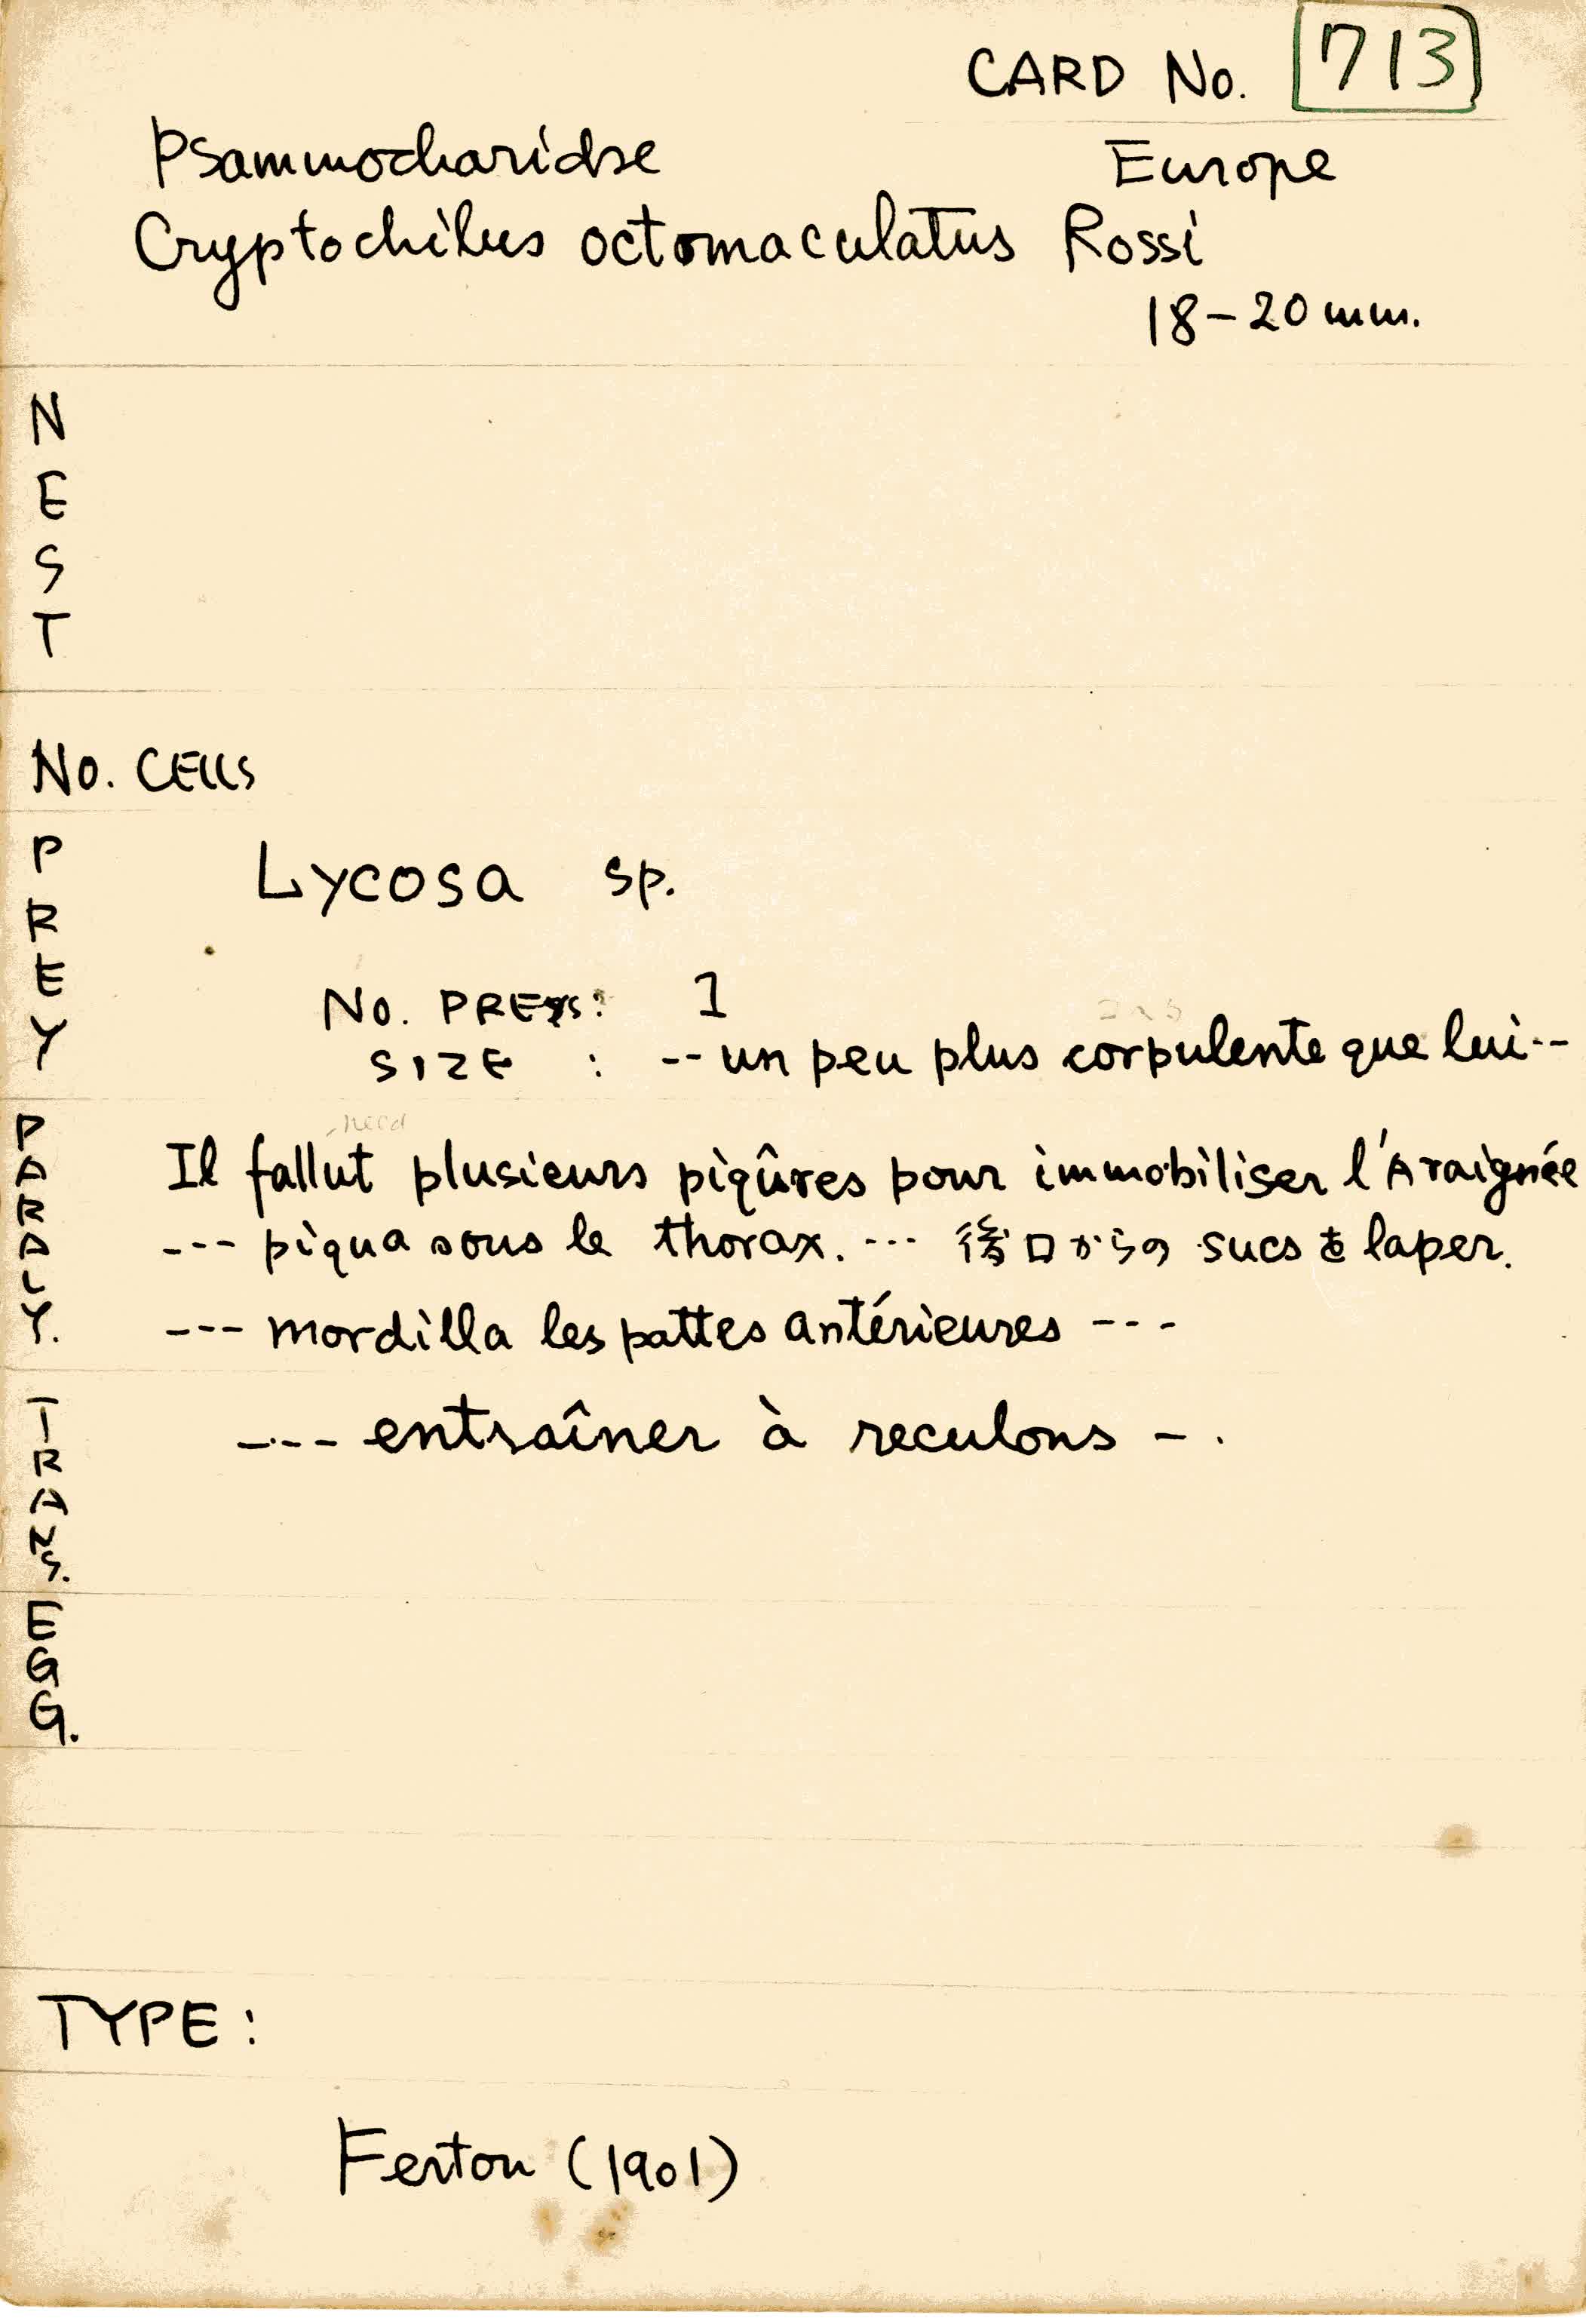 CARD No. 713
Psammocharidae Europe
Cryptochilus octomaculatus Rossi
18-20 mm.
NEST
No. CELLS
PREY
Lycosa sp.
No. PREYS: 1
SIZE : -- un peu plus corpulente que lui --
need
PARALY.
Il fallut plusieurs piqûres pour immobiliser l'Araignée
--- piqua sous le thorax. --- 後口からの sucs を laper.
--- mordilla les pattes antérieures ---
TRANS.
---- entraîner à reculons - .
EGG.
TYPE:
Ferton (1901)